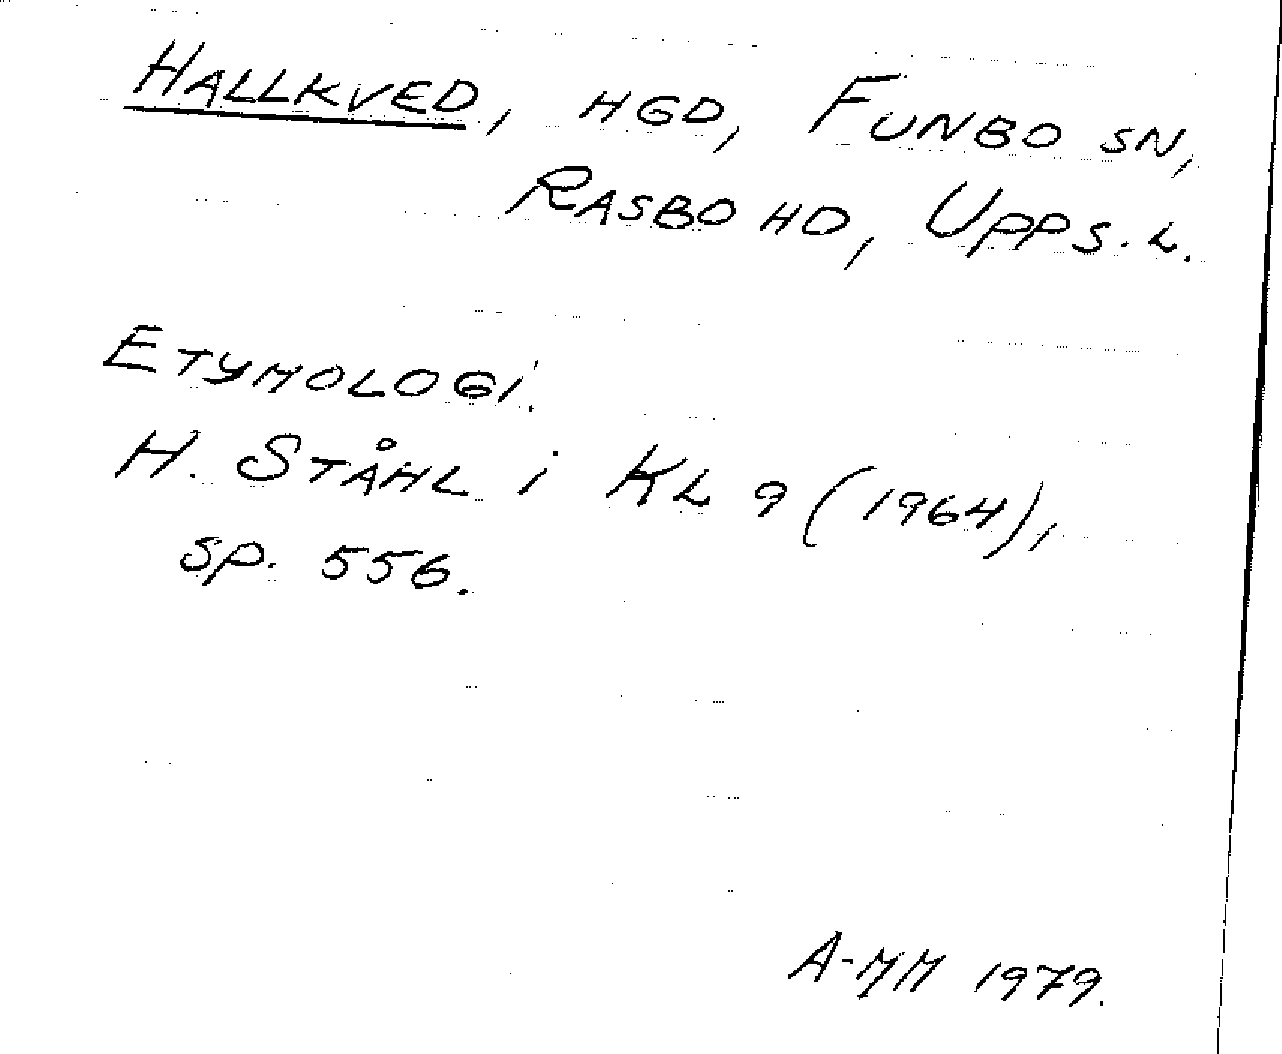 HALLKVED, HGD, FUNBO SN,
RASBO HD, UPPS. L.
ETYMOLOGI.
H. STÅHL i KL 9 (1964),
SP. 556.
A-MM 1979.